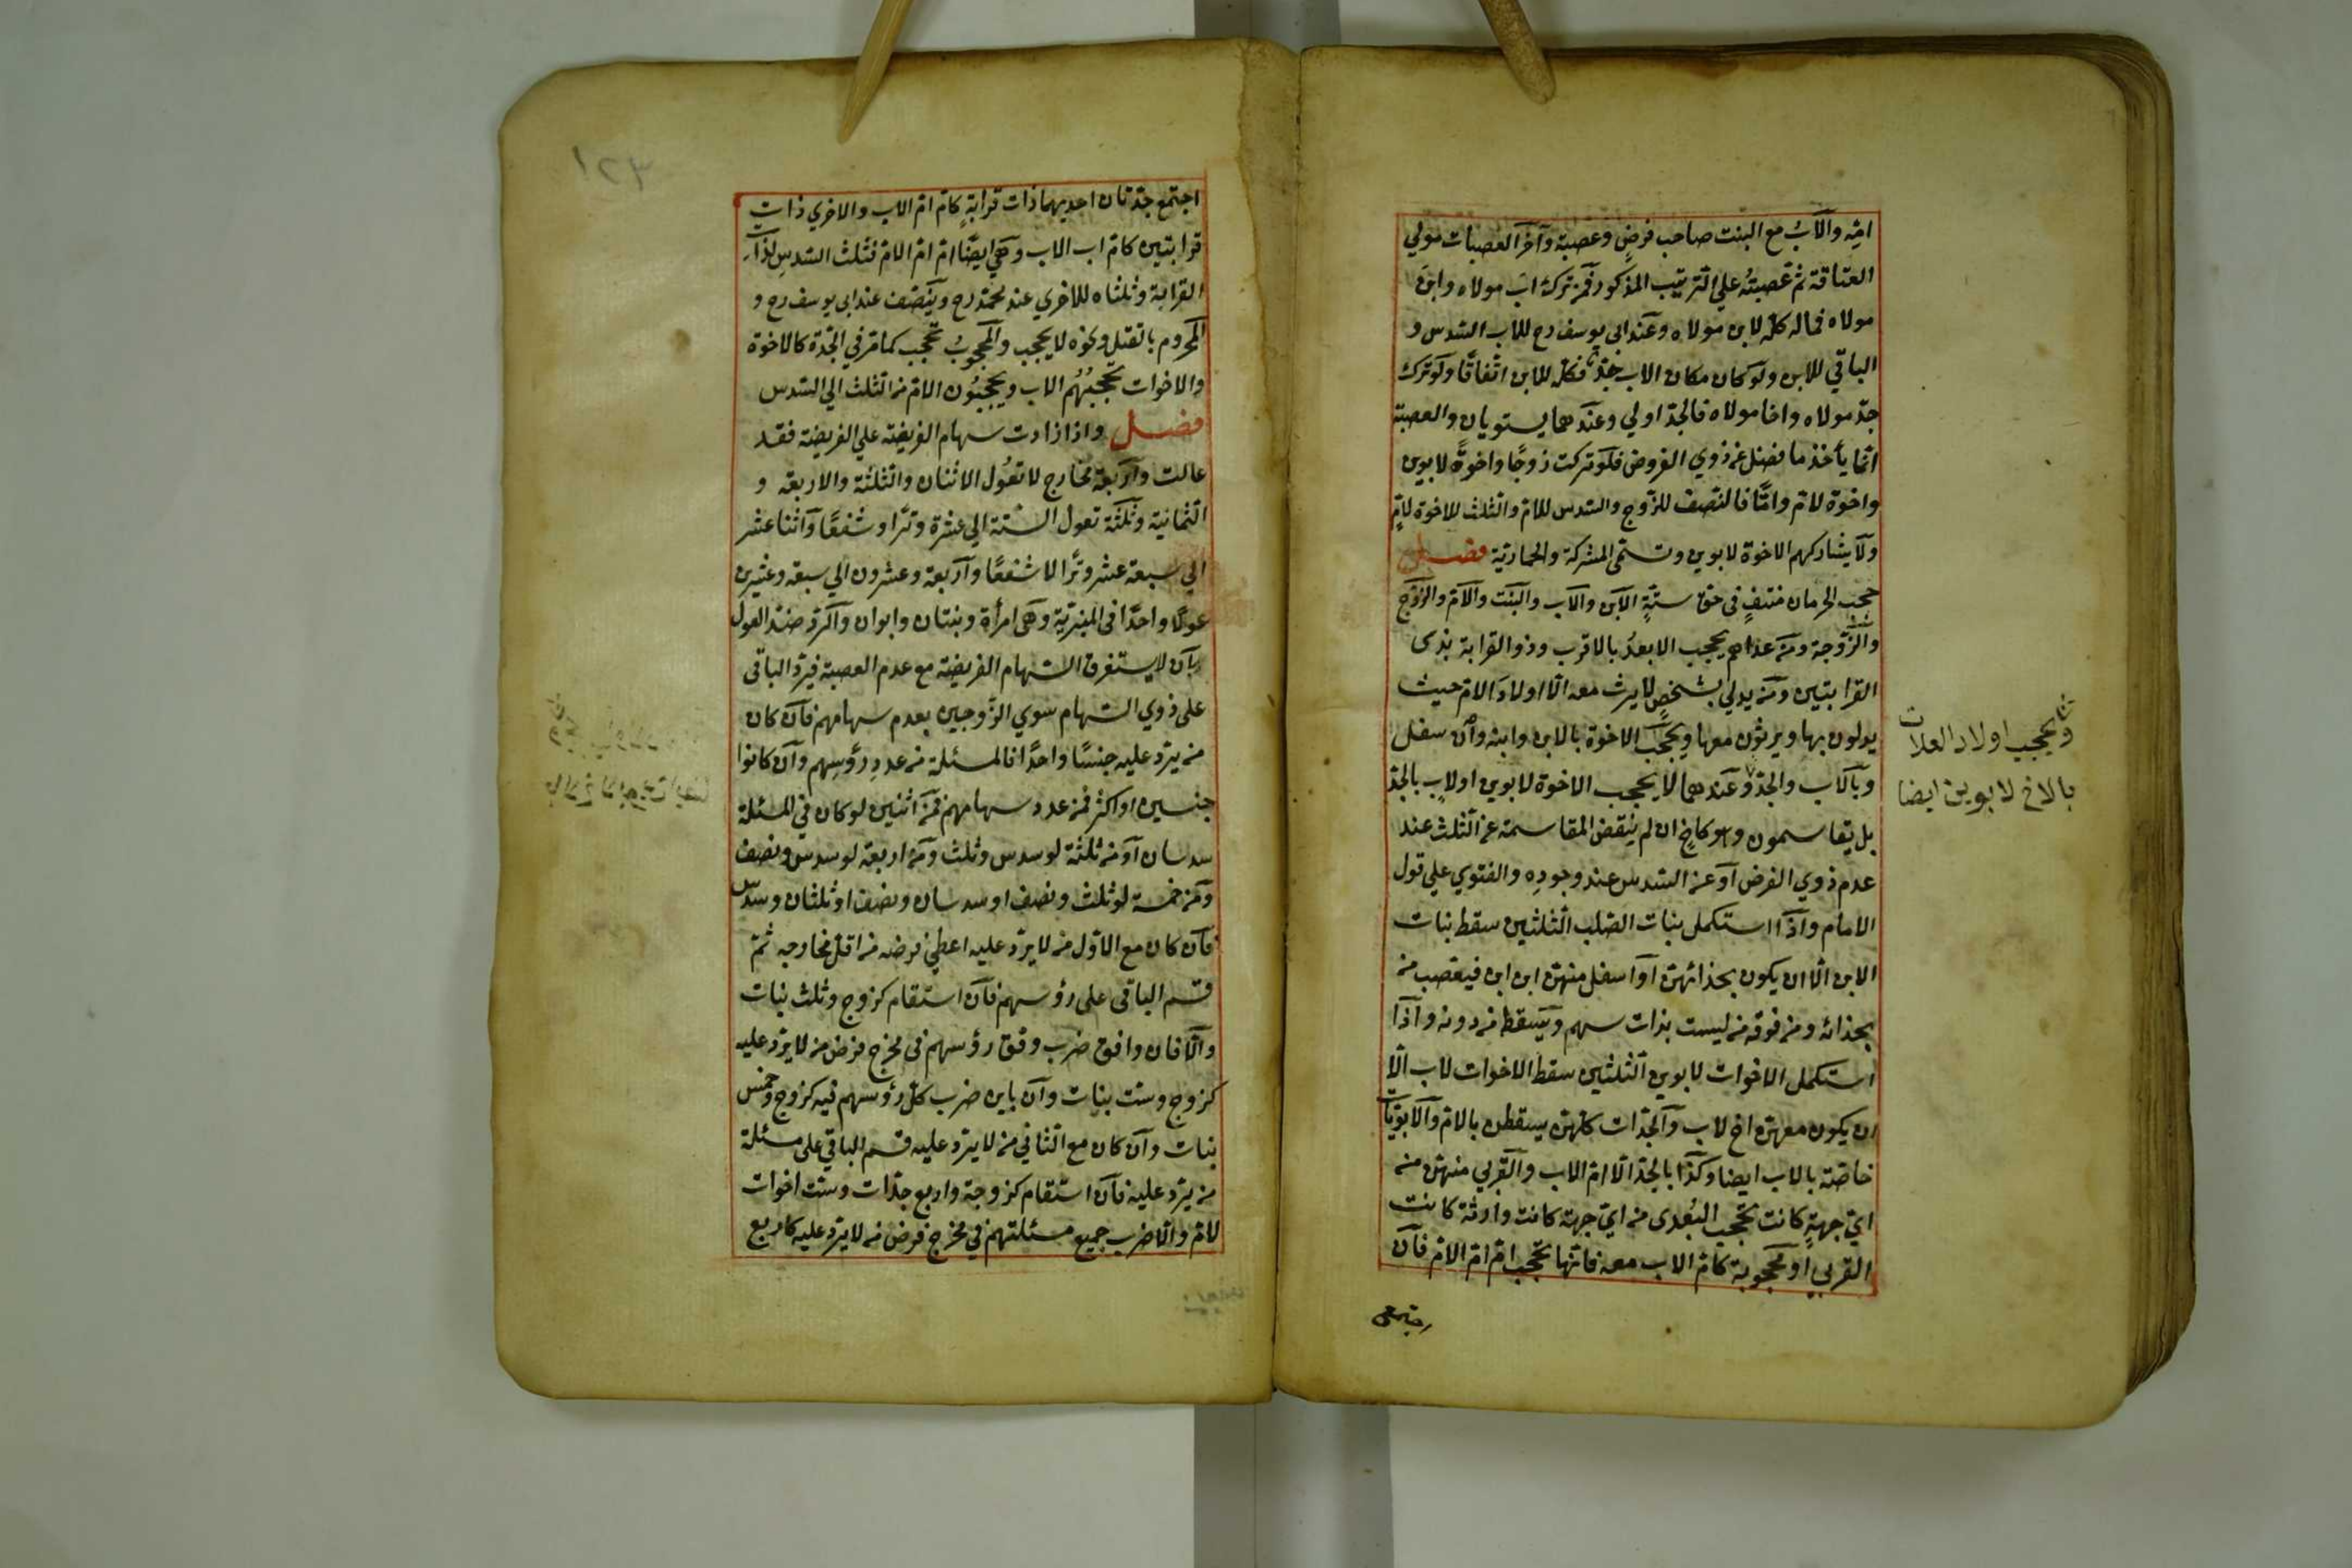 امّه والأبُ مع البنت صاحب فرضٍ وعصبة وآخر العصبات مولي
العتاقة ثم عصبتُه علي الترتيب المذكور فمن ترك اب مولاه وابن
مولاه فماله كلّه لابن مولاه وعند ابي يوسف رح للاب السّدس و
الباقي للابن ولو كان مكان الاب جدّ فكلّه للابن اتّفاقًا ولو ترك
جدّ مولاه واخا مولاه فالجدّ اولي وعندهما يستويان والعصبة
انّما يأخذ ما فضل عن ذوي الفروض فلو تركت زوجًا واخوةً لابوين
واخوة لامّ وامًّا فالنصف للزّوج والسّدس للامّ والثلث للاخوة لامٍّ
ولا يشاركهم الاخوة لابوين وتسمّى المشركة والحمارية فصل
حجب الحرمان منتفٍ في حق ستّةٍ الابن والاب والبنت والامّ والزّوج
والزّوجة ومن عداهم يحجب الابعدُ بالاقرب وذو القرابة بذى
القرابتين ومن يدلي بشخصٍ لا يرث معه الّا اولاد الامّ حيث
يدلون بها ويرثون معها ويحجب الاخوة بالابن وابنه وان سفل
وبالاب والجدّ وعندهما لا يحجب الاخوة لابوين او لابٍ بالجدّ
بل يقاسمون وهو كاخٍ ان لم ينقض المقاسمة عن الثلث عند
عدم ذوي الفرض او عن السّدس عند وجوده والفتوي علي قول
الامام واذا استكمل بنات الصّلب الثلثين سقط بنات
الابن الّا ان يكون بحذائهنّ او اسفل منهنّ ابن ابن فيعصب من
بحذائه ومن فوقه من ليست بذات سهم ويسقط من دونه واذا
استكمل الاخوات لابوين الثلثين سقط الاخوات لاب الّا
ان يكون معهنّ اخ لاب والجدّات كلّهنّ يسقطن بالامّ والابويّات
خاصّة بالاب ايضا وكذا بالجدّ الّا امّ الاب والقربي منهنّ من
ايّ جهةٍ كانت تحجب البُعدى من ايّ جهة كانت وارثة كانت
القربي او محجوبة كامّ الاب معه فانّها تحجب امّ امّ الامّ فان
ويحجب اولاد العلات
بالاخ لابوين ايضا
اجتمع
١٢٣
اجتمع جدّتان احديهما ذات قرابةٍ كامّ امّ الاب والاخري ذات
قرابتين كامّ اب الاب وهي ايضًا امّ امّ الامّ فثلث السّدس لذات
القرابة وثلثاه للاخري عند محمّد رح وينصّف عند ابي يوسف رح و
المحروم بالقتل ونحوه لا يحجب والمحجوبُ تحجب كما مرّ في الجدّة كالاخوة
والاخوات يحجبُهُم الاب ويحجبُون الامّ من الثلث الي السّدس
فصل واذا زادت سهام الفريضة علي الفريضة فقد
عالت واربعة مخارج لا تعُول الاثنان والثلثة والاربعة و
الثمانية وثلثة تعول السّتة الي عشرة وترًا وشفعًا واثنا عشر
الي سبعة عشر وترًا لا شفعًا واربعة وعشرون الي سبعة وعشرين
عولًا واحدًا في المنبريّة وهي امرأة وبنتان وابوان والرّدّ ضدّ العول
بان لا يستغرق السّهام الفريضة مع عدم العصبة فيردّ الباقي
على ذوي السّهام سوي الزّوجين بعدم سهامهم فان كان
من يردّ عليه جنسًا واحدًا فالمسئلة من عدد رؤسهم وان كانوا
جنسين او اكثر فمن عدد سهامهم فمن اثنين لو كان في المسئلة
سدسان او من ثلثة لو سدس وثلث ومن اربعة لو سدس ونصف
ومن خمسة لو ثلث ونصف او سدسان ونصف او ثلثان وسدس
فان كان مع الاوّل من لا يردّ عليه اعطي فرضه من اقل مخارجه ثمّ
قسم الباقي على رؤسهم فان استقام كزوج وثلث بنات
والّا فان وافق ضرب وفق رؤسهم في مخرج فرض من لا يردّ عليه
كزوج وستّ بنات وان باين ضرب كل رؤسهم فيه كزوج وخمس
بنات وان كان مع الثاني من لا يردّ عليه قسم الباقي على مسئلة
من يردّ عليه فان استقام كزوجة واربع جدّات وستّ اخوات
لامّ والّا ضرب جميع مسئلتهم في مخرج فرض من لا يردّ عليه كاربع